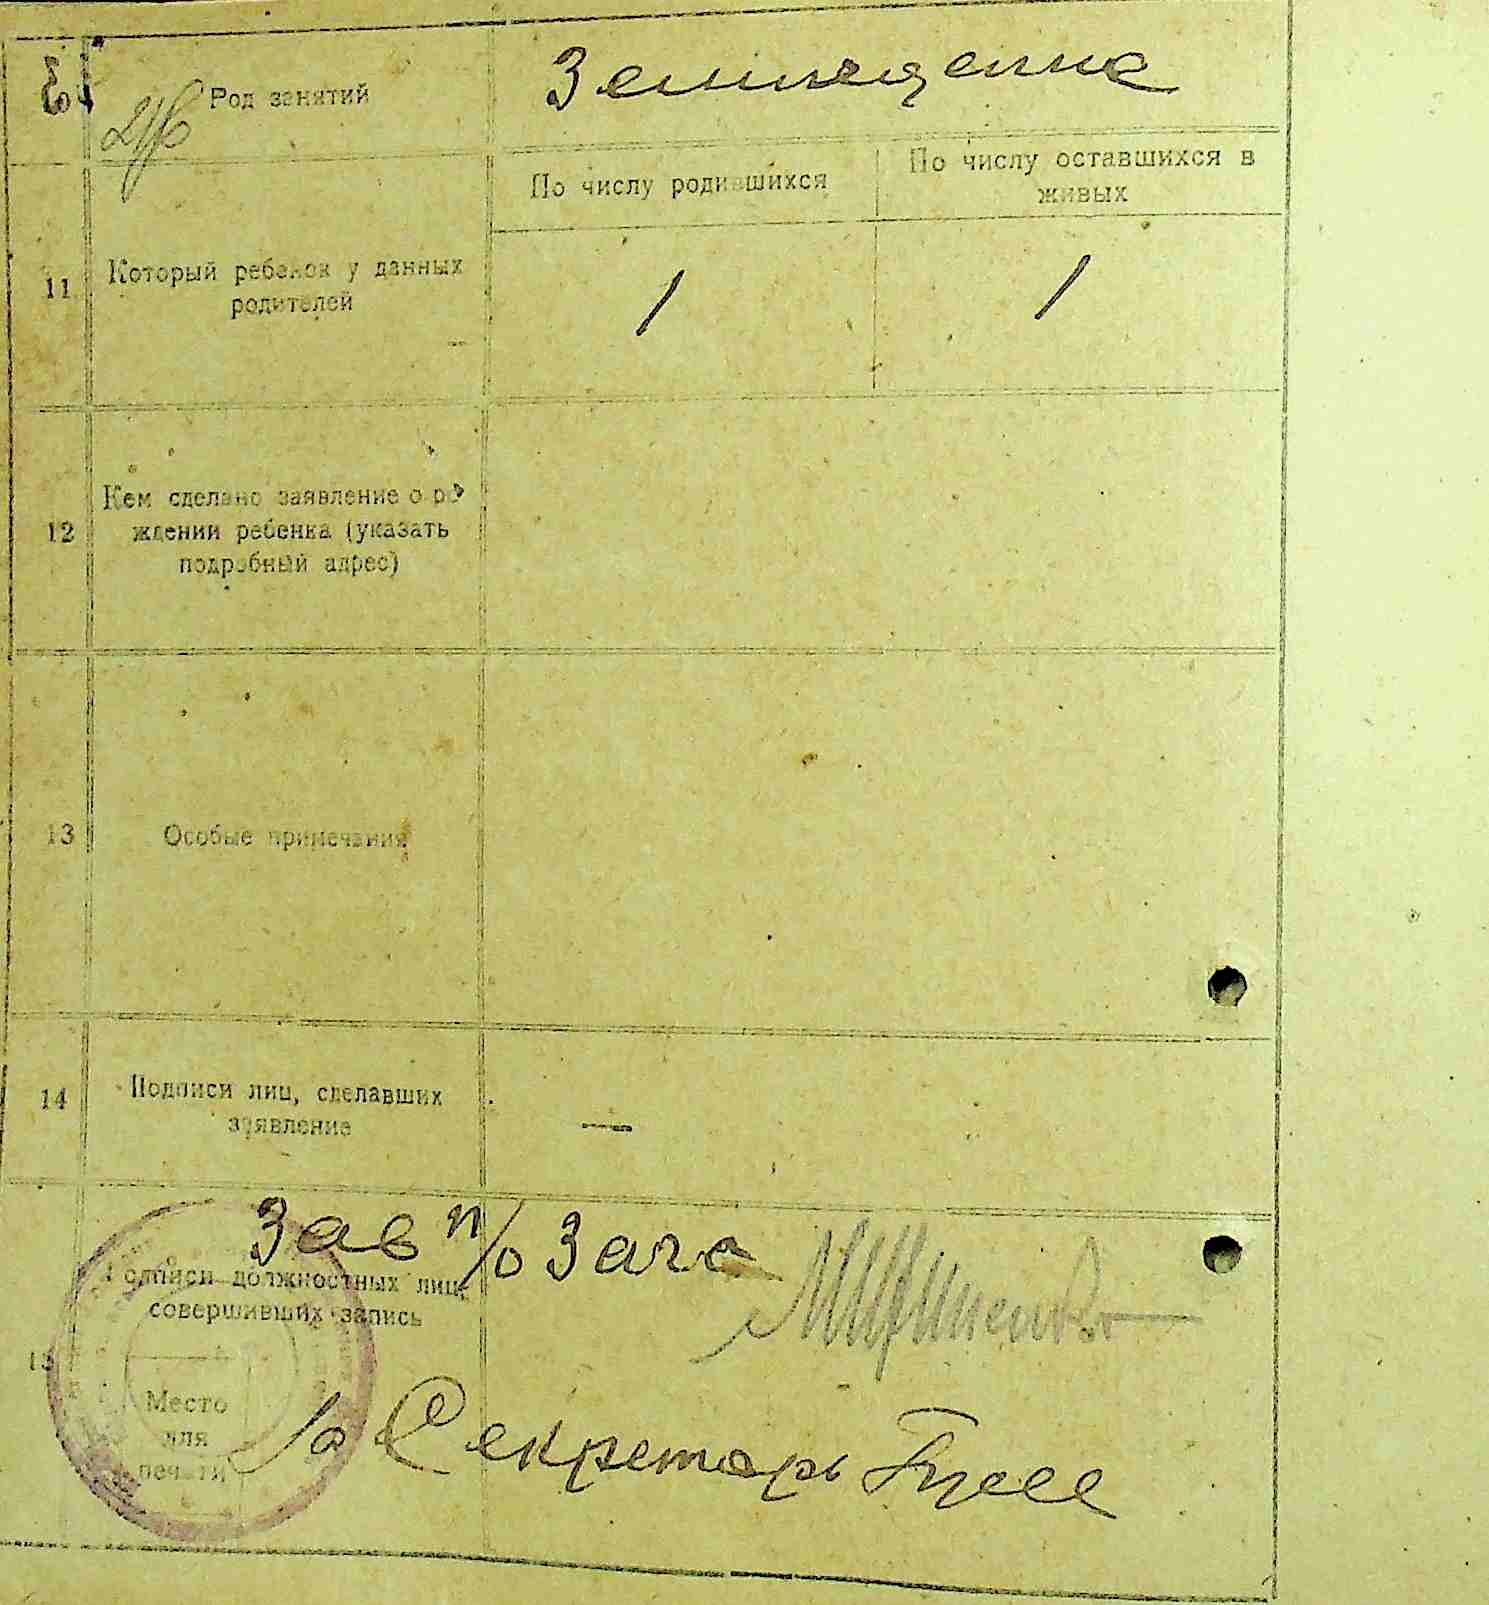 Род занятий
По числу родившихся
По числу оставшихся в
живых
11
Который ребенок у данных
родителей
1
1
12
Кем сделано заявление о ро
ждении ребенка (указать
подробный адрес)
13
Особые примечания
14
Подписи лиц, сделавших
заявление
—
Зав п/о Загс
Подписи должностных лиц,
совершивших запись
15
Место
для
печати
Секретарь